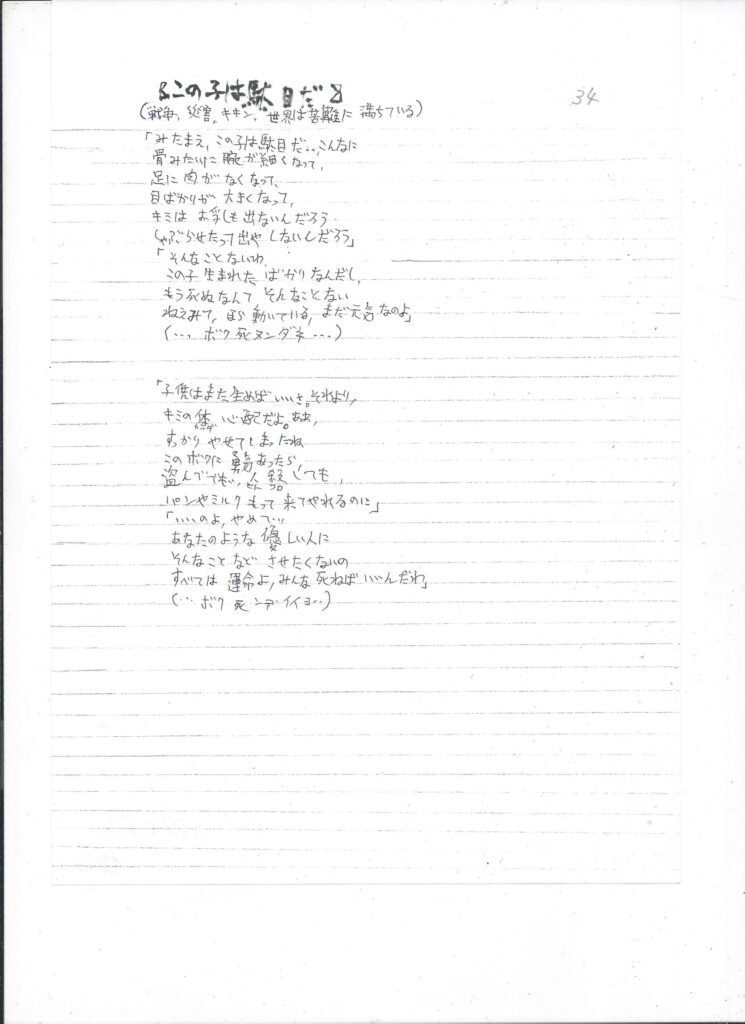 『この子は駄目だ』
34
(戦争、災害、キキン、世界は苦難に満ちている)
「みたまえ、この子は駄目だ‥、こんなに
骨みたいに腕が細くなって、
足に肉がなくなって、
目ばかりが大きくなって、
キミはお乳も出ないんだろう
しゃぶらせたって出やしないしだろう」
「そんなことないわ、
この子生まれたばかりなんだし、
もう死ぬなんてそんなことない
ねえみて、ほら動いている、まだ元気なのよ」
(… ボク死ヌンダネ …)
「子供はまた生めばいいさ。それより、
キミの体心配だよ。ああ、
からだ
すっかりやせてしまったね
このボクに勇気あったら
盗んででも‥、人殺しても、
ひと ころ
パンやミルクもって来てやれるのに」
「いいのよ、やめて…
あなたのような優しい人に
そんなことなどさせたくないの
すべては運命よ、みんな死ねばいいんだわ」
(‥ ボク死ンデイイヨ‥)